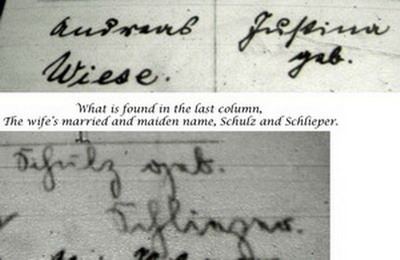 Andreas Justina
Wiese. geb.
What is found in the last column,
The wife's married and maiden name, Schulz and Schlieper.
Schulz geb.
Schlieper.